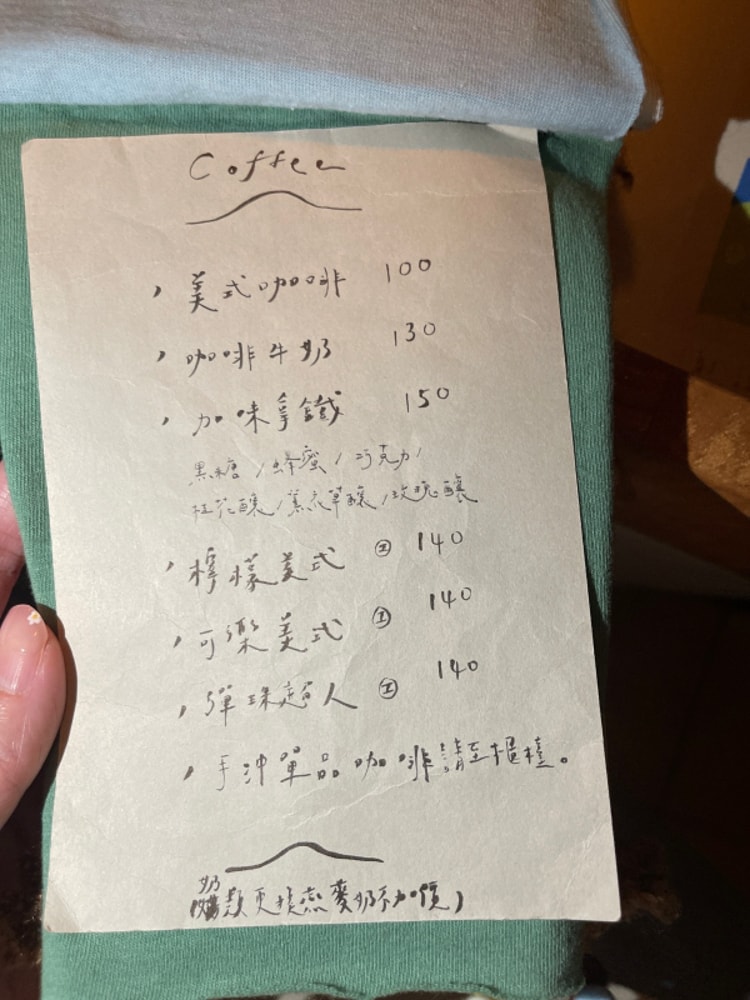 Coffee
, 美式咖啡 100
, 咖啡牛奶 130
, 加味拿鐵 150
黑糖/蜂蜜/巧克力/
桂花釀/薰衣草釀/玫瑰釀
, 檸檬美式 Ⓘ 140
, 可樂美式 Ⓘ 140
, 彈珠超人 Ⓘ 140
, 手沖單品咖啡請至櫃檯。
奶類更換燕麥奶不加價,